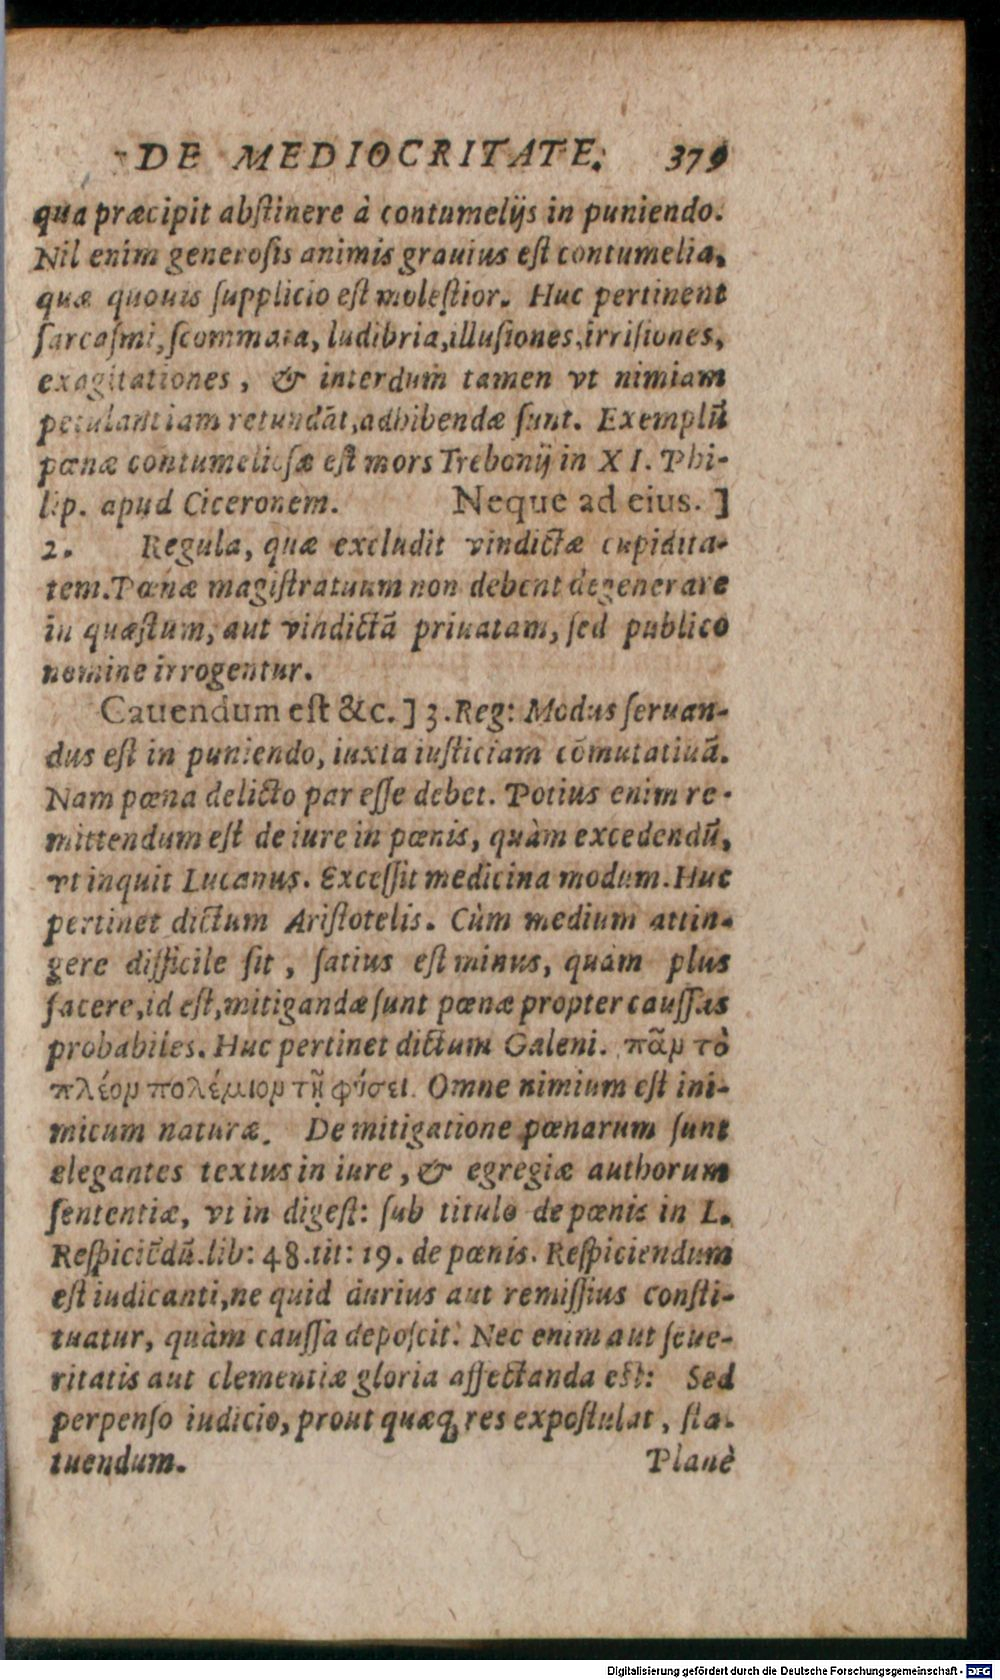 DE MEDIOCRITATE. 379
qua præcipit abſtinere à contumelijs in puniendo.
Nil enim generoſis animis grauius eſt contumelia,
quæ quouis ſupplicio eſt moleſtior. Huc pertinent
ſarcaſmi, ſcommata, ludibria, illuſiones, irriſiones,
exagitationes, & interdum tamen vt nimiam
petulantiam retundāt, adhibendæ ſunt. Exemplū
pœnæ contumelioſæ eſt mors Trebonij in XI. Phi-
lip. apud Ciceronem. Neque ad eius. ]
2. Regula, quæ excludit vindictæ cupidita-
tem. Pœnæ magiſtratuum non debent degenerare
in quæſtum, aut vindictā priuatam, ſed publico
nomine irrogentur.
Cauendum eſt &c. ] 3. Reg: Modus ſeruan-
dus eſt in puniendo, iuxta iuſticiam cōmutatiuā.
Nam pœna delicto par eſſe debet. Potius enim re-
mittendum eſt de iure in pœnis, quàm excedendū,
vt inquit Lucanus. Exceſſit medicina modum. Huc
pertinet dictum Ariſtotelis. Cùm medium attin-
gere difficile ſit, ſatius eſt minus, quàm plus
facere, id eſt, mitigandæ ſunt pœnæ propter cauſſas
probabiles. Huc pertinet dictum Galeni. πᾶν τὸ
πλέον πολέμιον τῇ φύσει. Omne nimium eſt ini-
micum naturæ. De mitigatione pœnarum ſunt
elegantes textus in iure, & egregiæ authorum
ſententiæ, vt in digeſt: ſub titulo de pœnis in L.
Reſpiciēdū. lib: 48. tit: 19. de pœnis. Reſpiciendum
eſt iudicanti, ne quid durius aut remiſſius conſti-
tuatur, quàm cauſſa depoſcit. Nec enim aut ſeue-
ritatis aut clementiæ gloria affectanda eſt: Sed
perpenſo iudicio, prout quæq; res expoſtulat, ſta-
tuendum. Planè
Digitalisierung gefördert durch die Deutsche Forschungsgemeinschaft - DFG